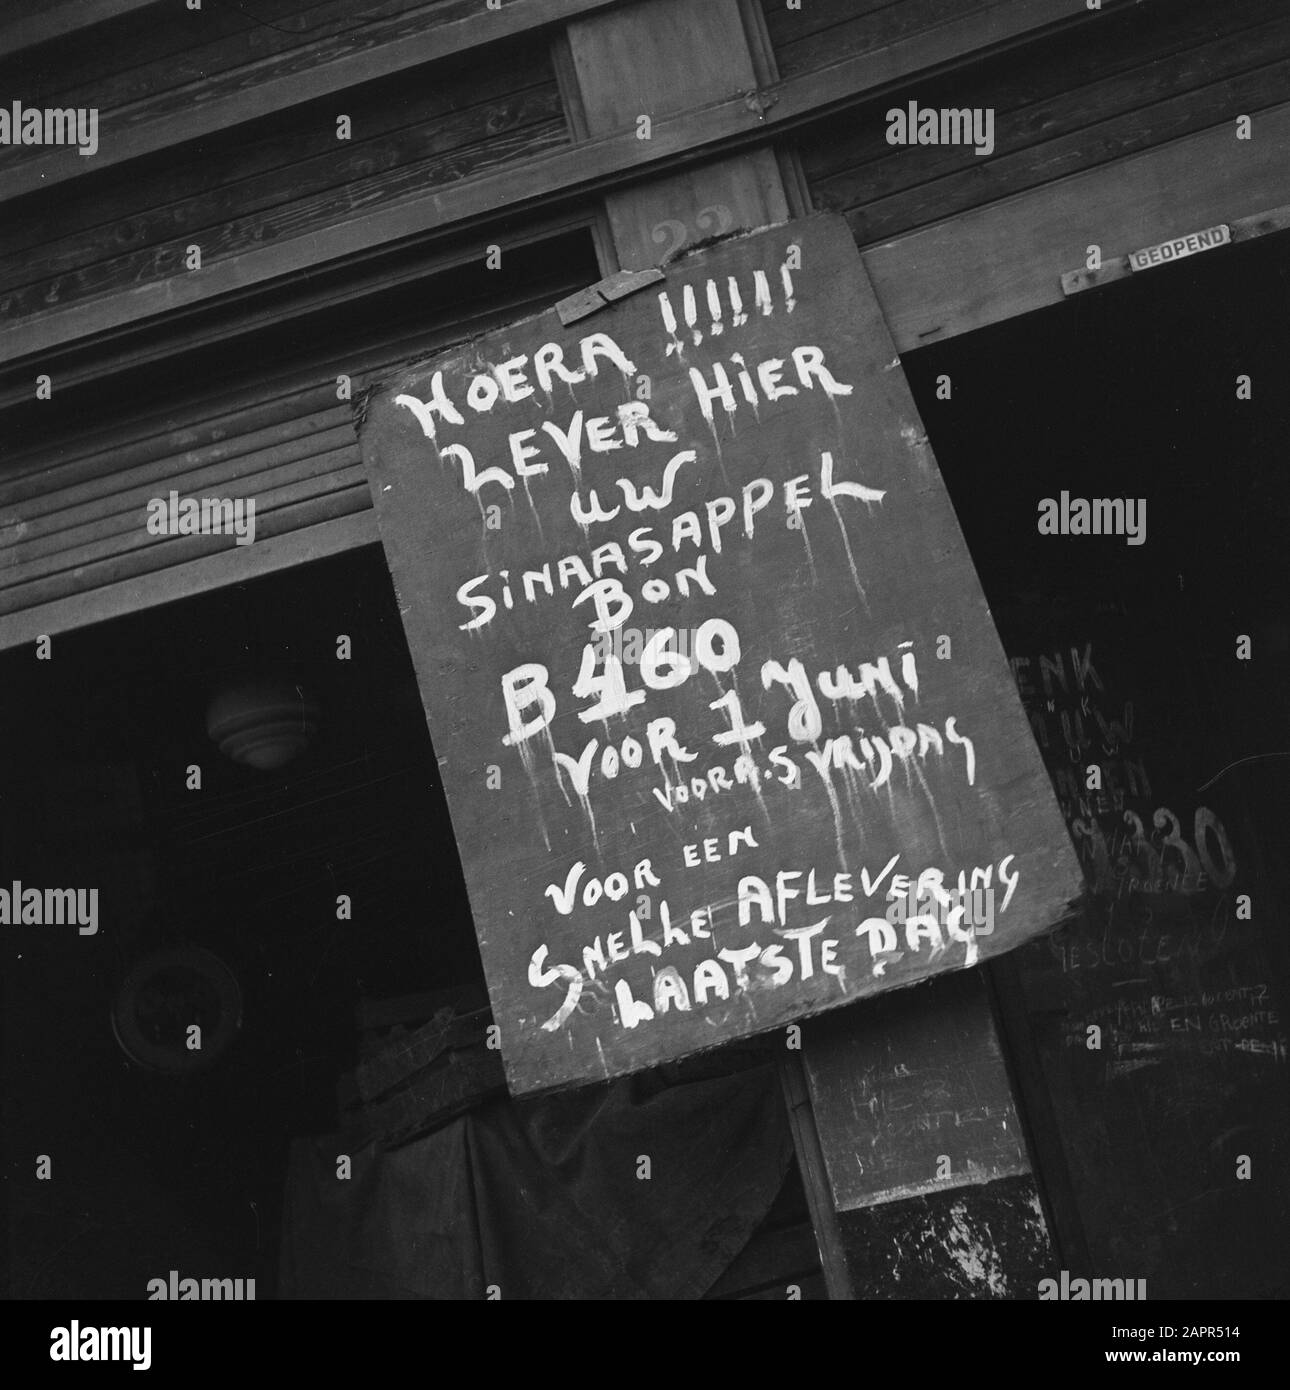 22
GEOPEND
HOERA !!!!!!
LEVER HIER
UW
SINAASAPPEL
BON
B 460
VOOR 1 Juni
VOORA.S VRIJDAG
VOOR EEN
SNELLE AFLEVERING
LAATSTE DAG
ENK
UW
330
GROENTE
GESLOTEN
EN GROENTE
alamy
alamy
Image ID: 2APR514
www.alamy.com